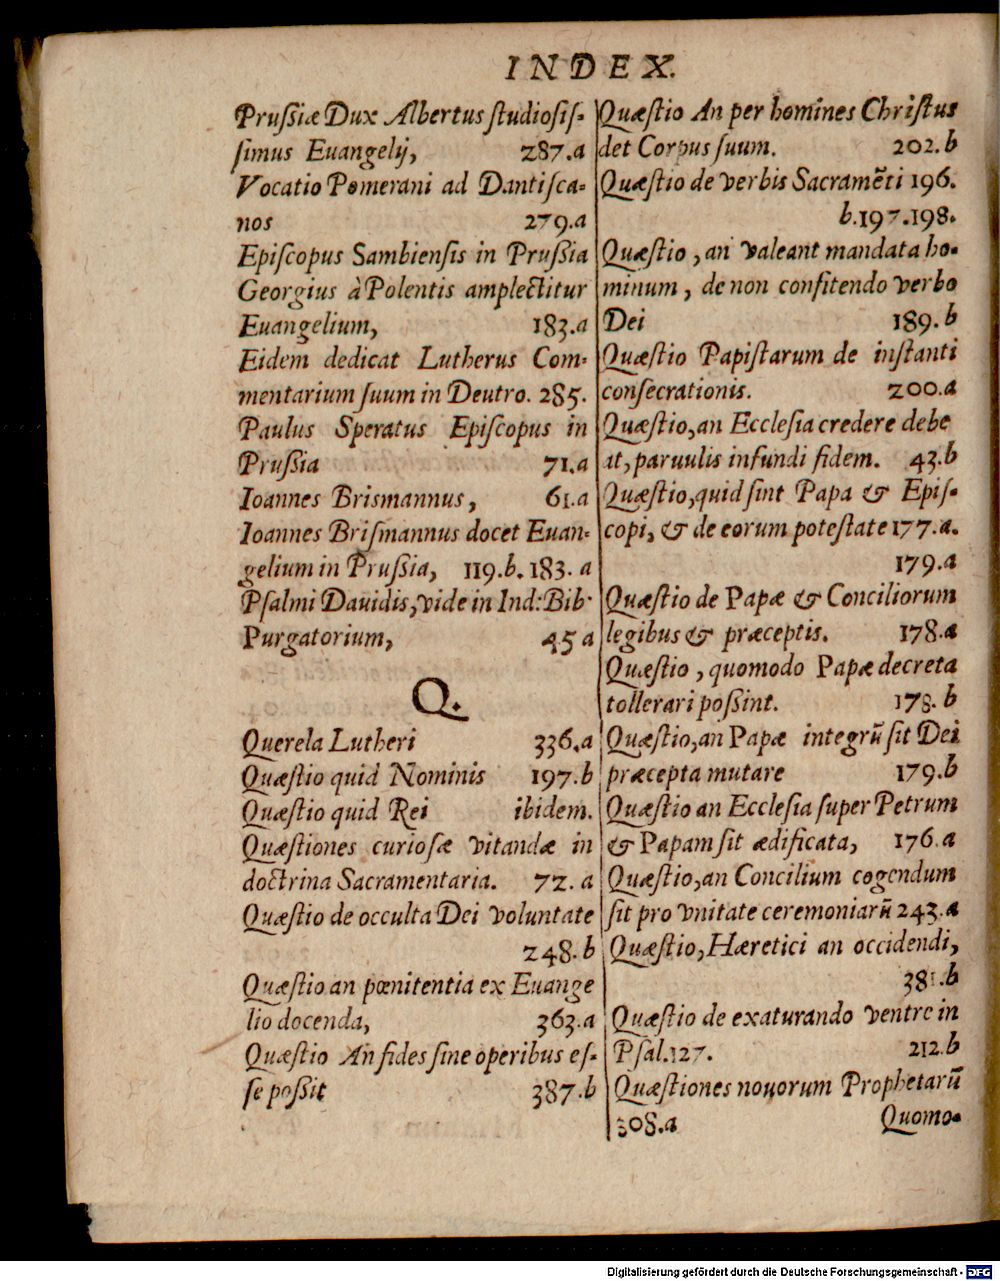 INDEX.
Prußiæ Dux Albertus ſtudioſiſ-
ſimus Euangelij, 287.a
Vocatio Pomerani ad Dantiſca-
nos 279.a
Epiſcopus Sambienſis in Prußia
Georgius à Polentis amplectitur
Euangelium, 183.a
Eidem dedicat Lutherus Com-
mentarium ſuum in Deutro. 285.
Paulus Speratus Epiſcopus in
Prußia 71.a
Ioannes Brismannus, 61.a
Ioannes Briſmannus docet Euan-
gelium in Prußia, 119.b. 183. a
Pſalmi Dauidis, vide in Ind: Bib-
Purgatorium, 45 a
Q.
Querela Lutheri 336.a
Quæſtio quid Nominis 197.b
Quæſtio quid Rei ibidem.
Quæſtiones curioſæ vitandæ in
doctrina Sacramentaria. 72. a
Quæſtio de occulta Dei voluntate
248.b
Quæſtio an pœnitentia ex Euange
lio docenda, 363.a
Quæſtio An fides ſine operibus eſ-
ſe poßit 387.b
Quæſtio An per homines Chriſtus
det Corpus ſuum. 202.b
Quæſtio de verbis Sacramēti 196.
b.197.198.
Quæſtio, an valeant mandata ho-
minum, de non confitendo verbo
Dei 189.b
Quæſtio Papiſtarum de inſtanti
conſecrationis. 200.a
Quæſtio, an Eccleſia credere debe
at, paruulis infundi fidem. 43.b
Quæſtio, quid ſint Papa & Epiſ-
copi, & de eorum poteſtate 177.a.
179.a
Quæſtio de Papæ & Conciliorum
legibus & præceptis. 178.a
Quæſtio, quomodo Papæ decreta
tollerari poßint. 178.b
Quæſtio, an Papæ integrū ſit Dei
præcepta mutare 179.b
Quæſtio an Eccleſia ſuper Petrum
& Papam ſit ædificata, 176.a
Quæſtio, an Concilium cogendum
ſit pro vnitate ceremoniarū 243.a
Quæſtio, Hæretici an occidendi,
381.b
Quæſtio de exaturando ventre in
Pſal.127. 212.b
Quæſtiones nouorum Prophetarū
308.a Quomo-
Digitalisierung gefördert durch die Deutsche Forschungsgemeinschaft - DFG